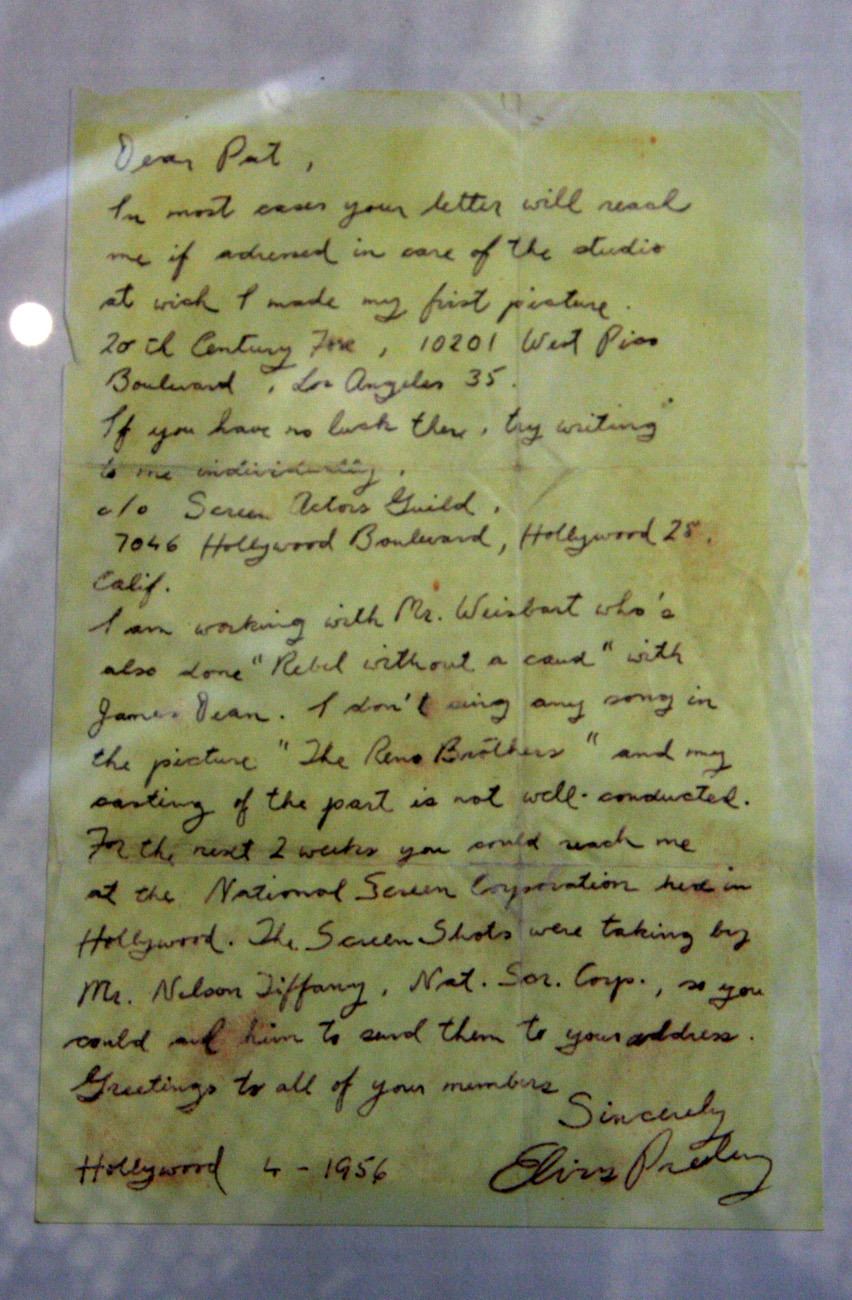 Dear Pat,
In most cases your letter will reach
me if adressed in care of the studio
at wich I made my first picture.
20th Century Fox, 10201 West Pico
Boulevard, Los Angeles 35.
If you have no luck there, try writing
to me individually,
c/o Screen Actors Guild,
7046 Hollywood Boulevard, Hollywood 28,
Calif.
I am working with Mr. Weisbart who's
also done "Rebel without a caus" with
James Dean. I don't sing any song in
the picture "The Reno Brothers" and my
casting of the part is not well-conducted.
For the next 2 weeks you could reach me
at the National Screen Corporation here in
Hollywood. The Screen Shots were taking by
Mr. Nelson Tiffany, Nat. Scr. Corp., so you
could ask him to send them to your address.
Greetings to all of your members
Sincerely
Hollywood 4-1956 Elvis Presley